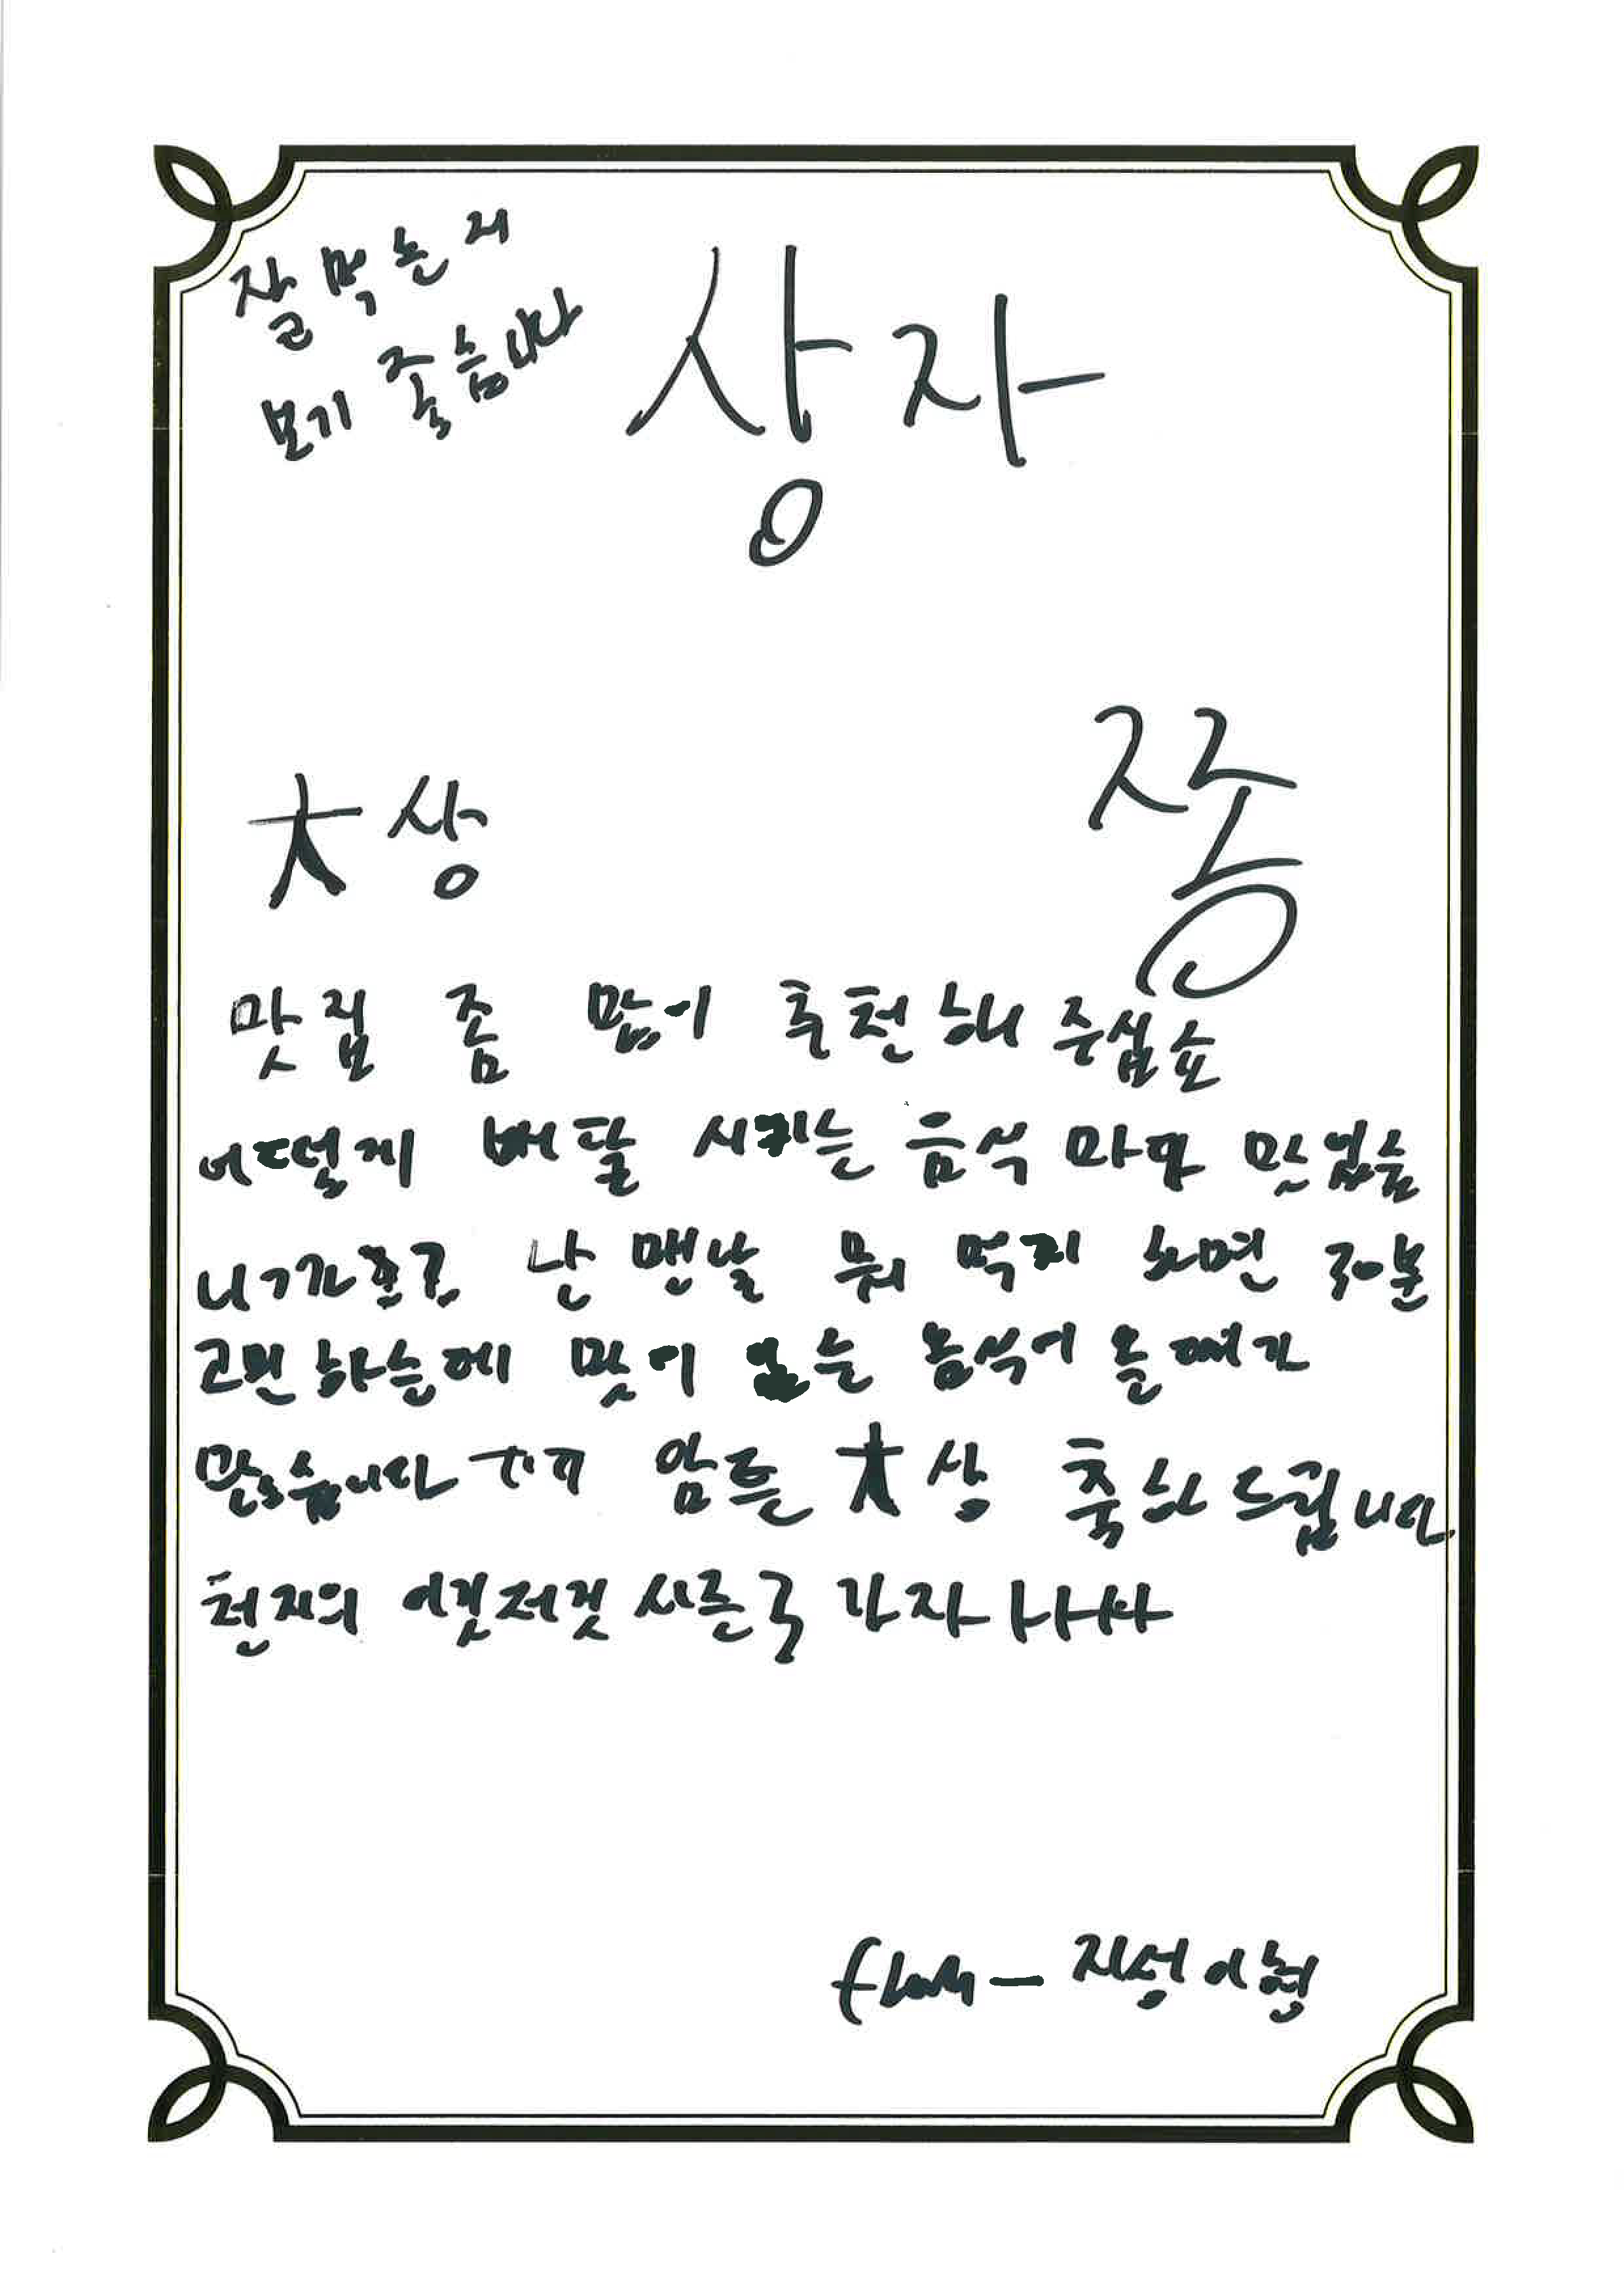 잘 먹는 거
보기 좋습니다
상자
大상
쫑
맛집 좀 많이 추천해 주십쇼
어떻게 배달 시키는 음식 마다 맛있습
니까 난 맨날 뭐 먹지 하면 30분
고민하는데 맛이 없는 음식이 올때가
많습니다 ㅜㅜ 암튼 大상 축하드립니다
천지의 이것저것 시즌3 가자
from - 지성이형